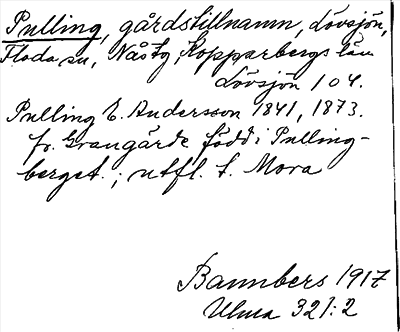 Pulling, gårdstillnamn, Lövsjön,
Floda sn, Nåstg, Kopparbergs län
Lövsjön 104.
Pulling E. Andersson 1841, 1873.
fr. Grangärde född i Pulling-
berget.; utfl. t. Mora
Bannbers 1917
Ulma 321:2